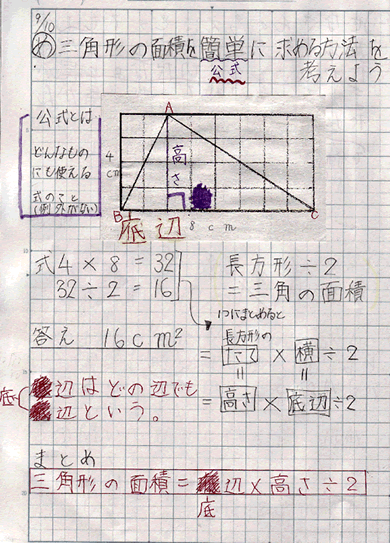 9/10
め 三角形の面積を簡単に求める方法を
公式
考えよう
公式とは
どんなもの
にも使える
式のこと
(例外がない)
A
高さ
4
cm
B
C
底辺
8cm
式 4×8=32
32÷2=16
答え 16cm²
長方形÷2
=三角の面積
1つにまとめると
長方形の
=たて×横÷2
=高さ×底辺÷2
底
辺はどの辺でも
辺という。
まとめ
三角形の面積=辺×高さ÷2
底